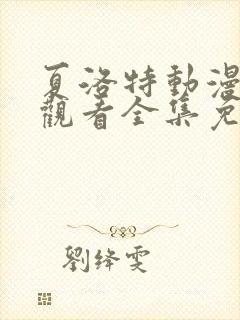 夏洛特動漫
觀看全集免
劉絳雯